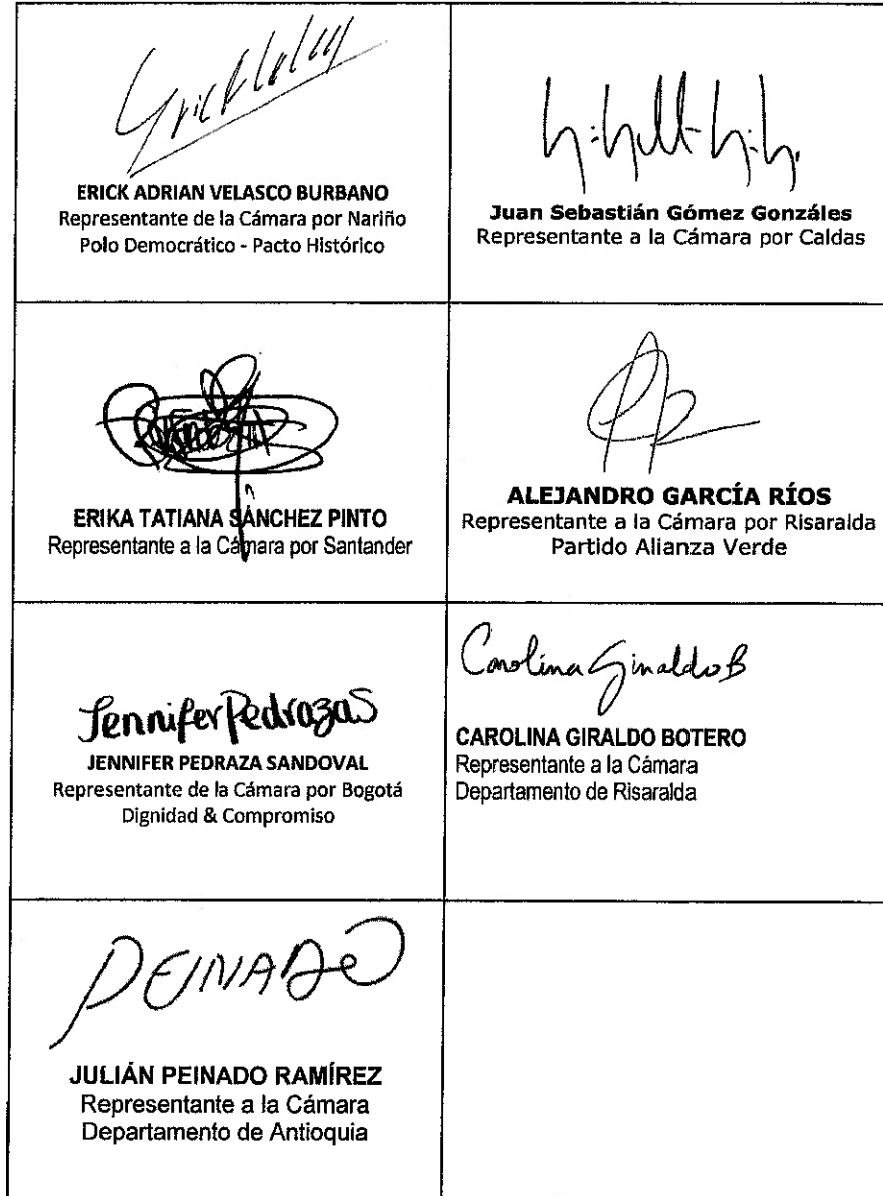 ERICK ADRIAN VELASCO BURBANO
Representante de la Cámara por Nariño
Polo Democrático - Pacto Histórico
Juan Sebastián Gómez Gonzáles
Representante a la Cámara por Caldas
ERIKA TATIANA SÁNCHEZ PINTO
Representante a la Cámara por Santander
ALEJANDRO GARCÍA RÍOS
Representante a la Cámara por Risaralda
Partido Alianza Verde
Jennifer Pedraza S
JENNIFER PEDRAZA SANDOVAL
Representante de la Cámara por Bogotá
Dignidad & Compromiso
Carolina Giraldo B
CAROLINA GIRALDO BOTERO
Representante a la Cámara
Departamento de Risaralda
PEINADO
JULIÁN PEINADO RAMÍREZ
Representante a la Cámara
Departamento de Antioquia